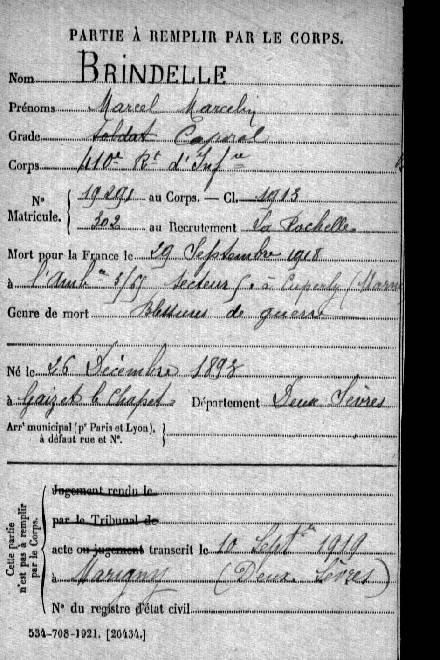 PARTIE À REMPLIR PAR LE CORPS.
Nom BRINDELLE
Prénoms Marcel Marcelin
Grade Soldat Caporal
Corps 410e Rt d'Infie
No Matricule. 19291 au Corps. — Cl. 1913
302 au Recrutement La Rochelle
Mort pour la France le 29 Septembre 1918
à l'Ambce 3/69 secteur à Cuperly (Marne
Genre de mort Blessures de guerre
Né le 26 Décembre 1893
à Département Deux Sèvres
Arrt municipal (pr Paris et Lyon), à défaut rue et No.
Cette partie n'est pas à remplir par le Corps.
Jugement rendu le
par le Tribunal de
acte ou jugement transcrit le 10 Septbre 1919
à Marigny (Deux Sèvres)
No du registre d'état civil
534-708-1921. [20434.]